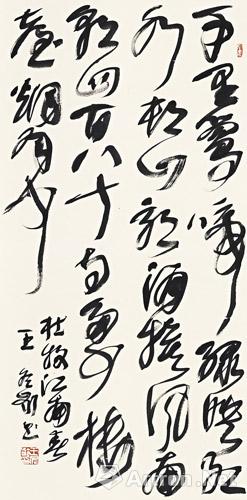 千里鶯啼綠映紅
水村山郭酒旗風南
朝四百八十寺多少樓
臺烟雨中
杜牧江南春
王冬齡书
Artron.Net